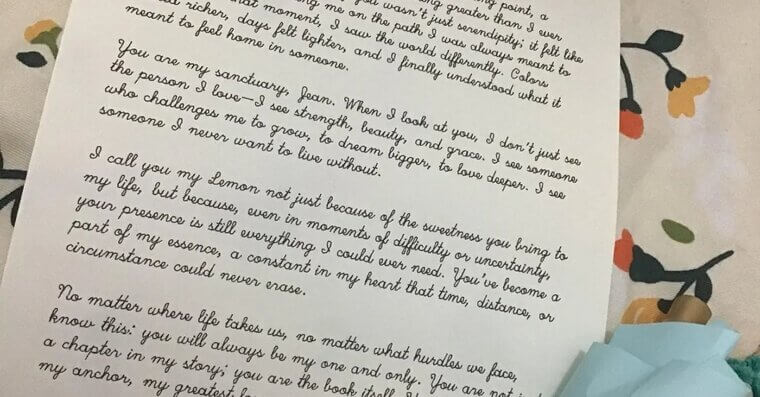 ing point, a
ing greater than I ever
you wasn't just serendipity; it felt like
ing me on the path I was always meant to
at moment, I saw the world differently. Colors
richer, days felt lighter, and I finally understood what it
meant to feel home in someone.
You are my sanctuary, Jean. When I look at you, I don't just see
the person I love—I see strength, beauty, and grace. I see someone
who challenges me to grow, to dream bigger, to love deeper. I see
someone I never want to live without.
I call you my Lemon not just because of the sweetness you bring to
my life, but because, even in moments of difficulty or uncertainty,
your presence is still everything I could ever need. You've become a
part of my essence, a constant in my heart that time, distance, or
circumstance could never erase.
No matter where life takes us, no matter what hurdles we face,
know this: you will always be my one and only. You are not
a chapter in my story; you are the book itself.
my anchor, my greatest